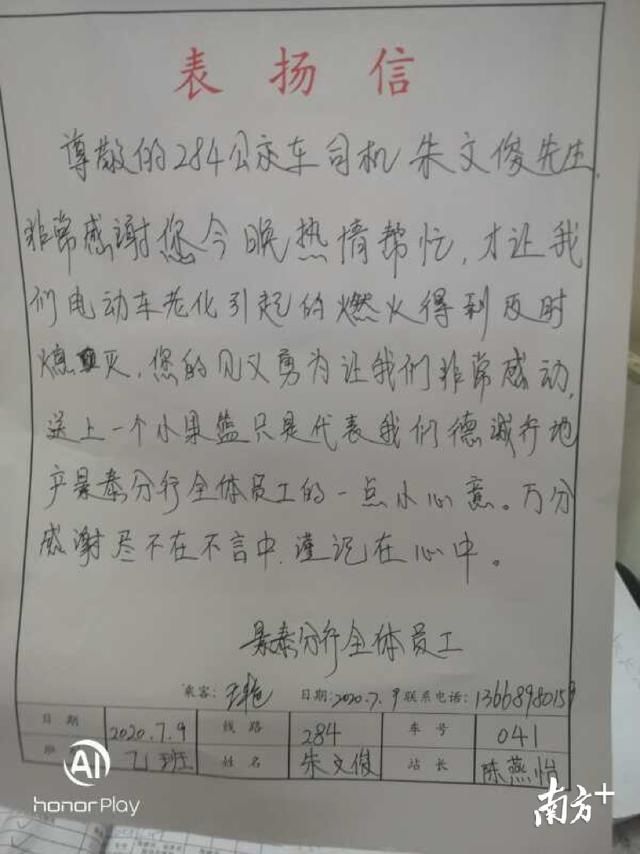 表扬信
尊敬的284公交车司机朱文俊先生,
非常感谢您今晚热情帮忙,才让我
们电动车老化引起的燃火得到及时
熄灭,您的见义勇为让我们非常感动,
送上一个小果篮只是代表我们德诚行地
产景泰分行全体员工的一点小心意。万分
感谢尽不在不言中,谨记在心中。
景泰分行全体员工
乘客: 日期:2020.7.9 联系电话:13668980159
日期 2020.7.9 线路 284 车号 041
班 乙班 姓名 朱文俊 站长 陈燕怡
AI
honorPlay
南方+